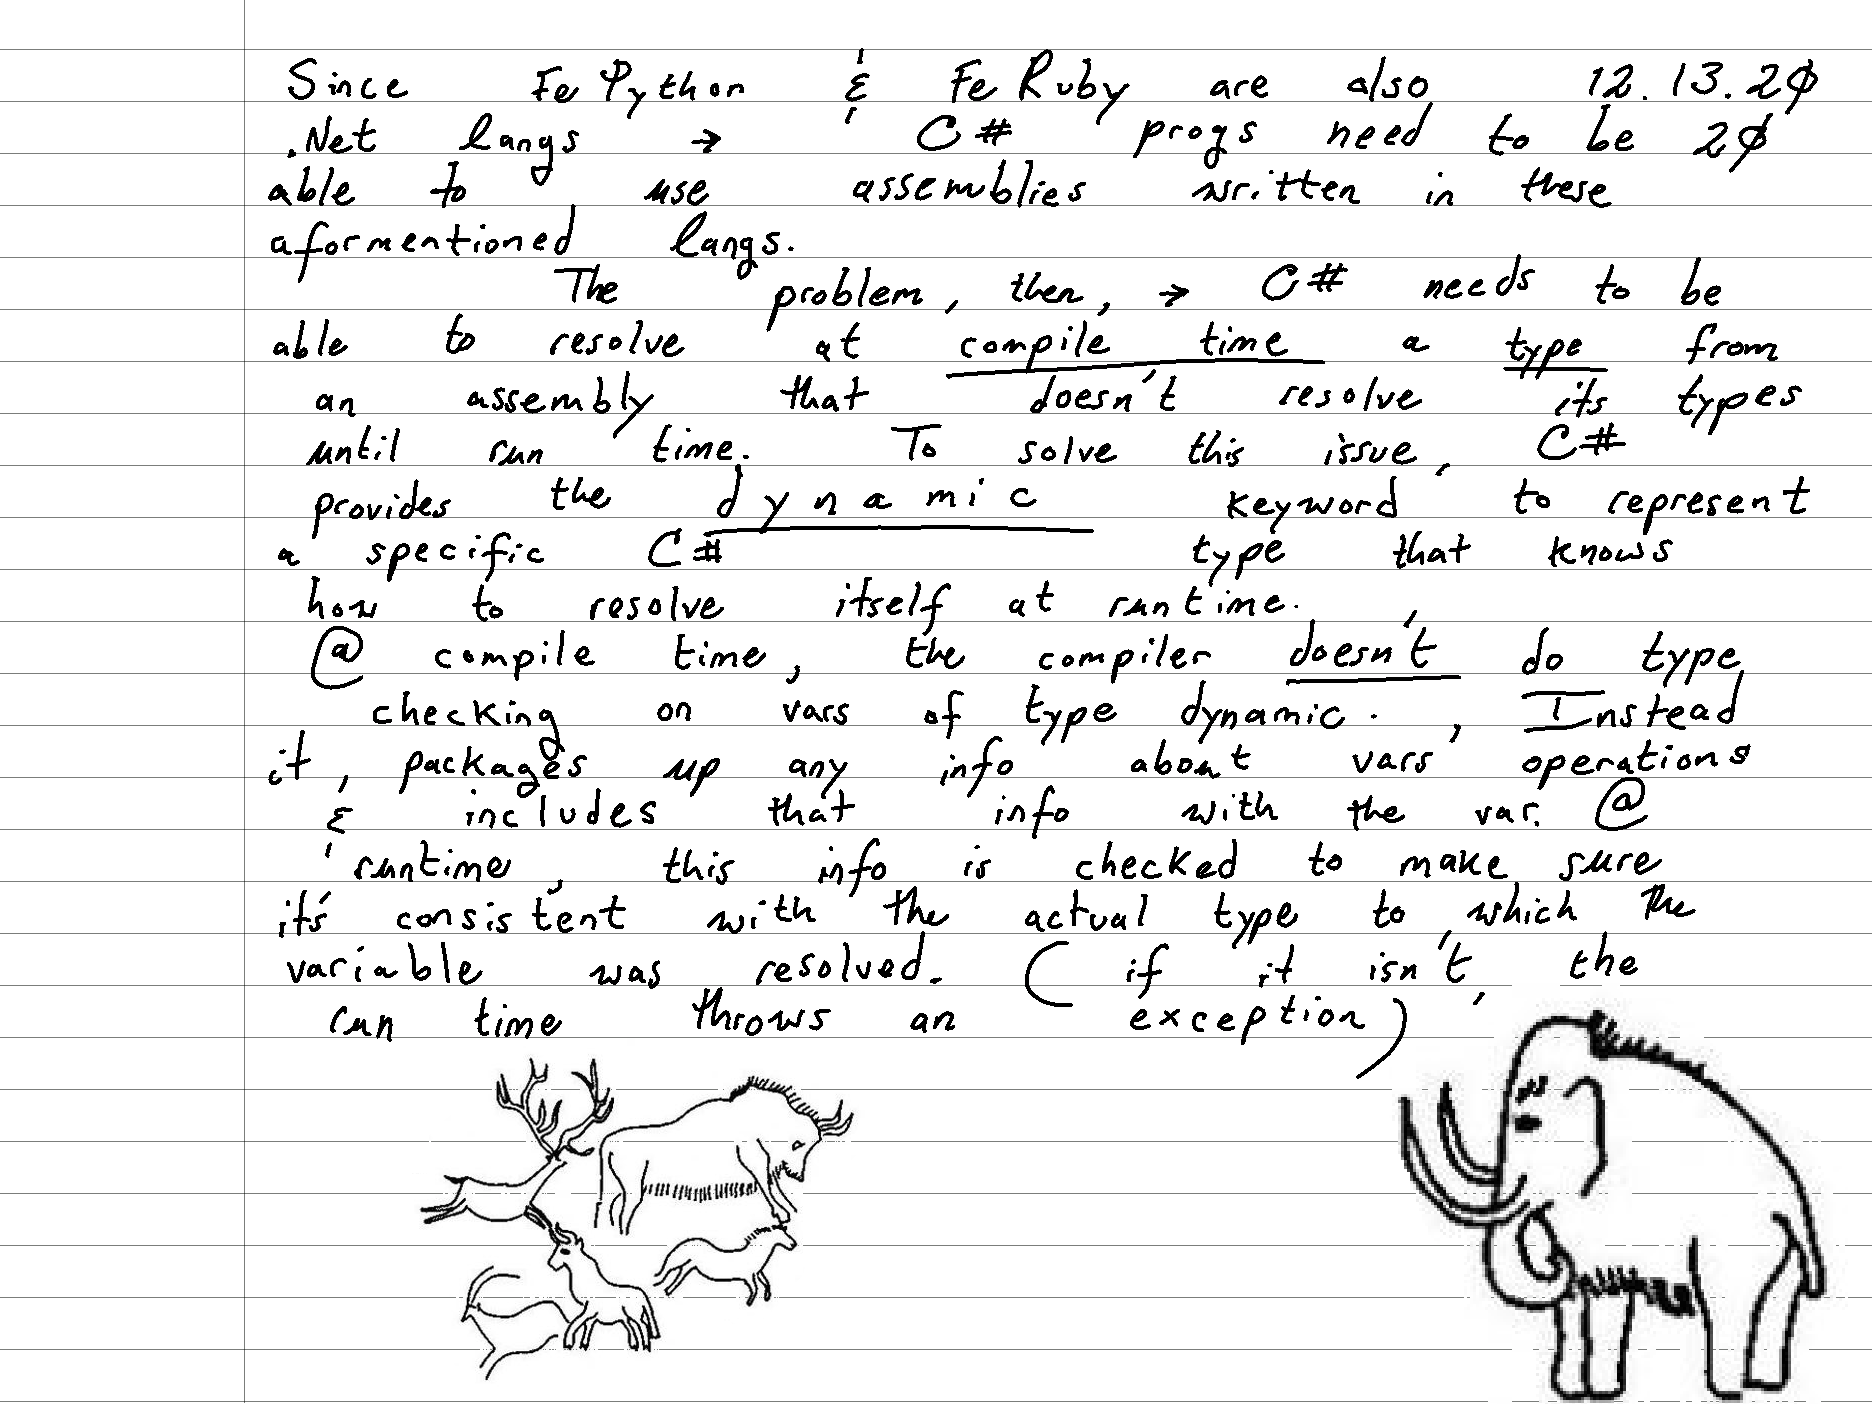 Since Fe Python & Fe Ruby are also 12.13.2∅
.Net langs → C# progs need to be 2∅
able to use assemblies written in these
aformentioned langs.
The problem, then, → C# needs to be
able to resolve at compile time a type from
an assembly that doesn't resolve its types
until run time. To solve this issue, C#
provides the dynamic keyword to represent
a specific C# type that knows
how to resolve itself at runtime.
@ compile time, the compiler doesn't do type
checking on vars of type dynamic. Instead,
it, packages up any info about vars' operations
& includes that info with the var. @
runtime, this info is checked to make sure
it's consistent with the actual type to which the
variable was resolved. (if it isn't, the
run time throws an exception)